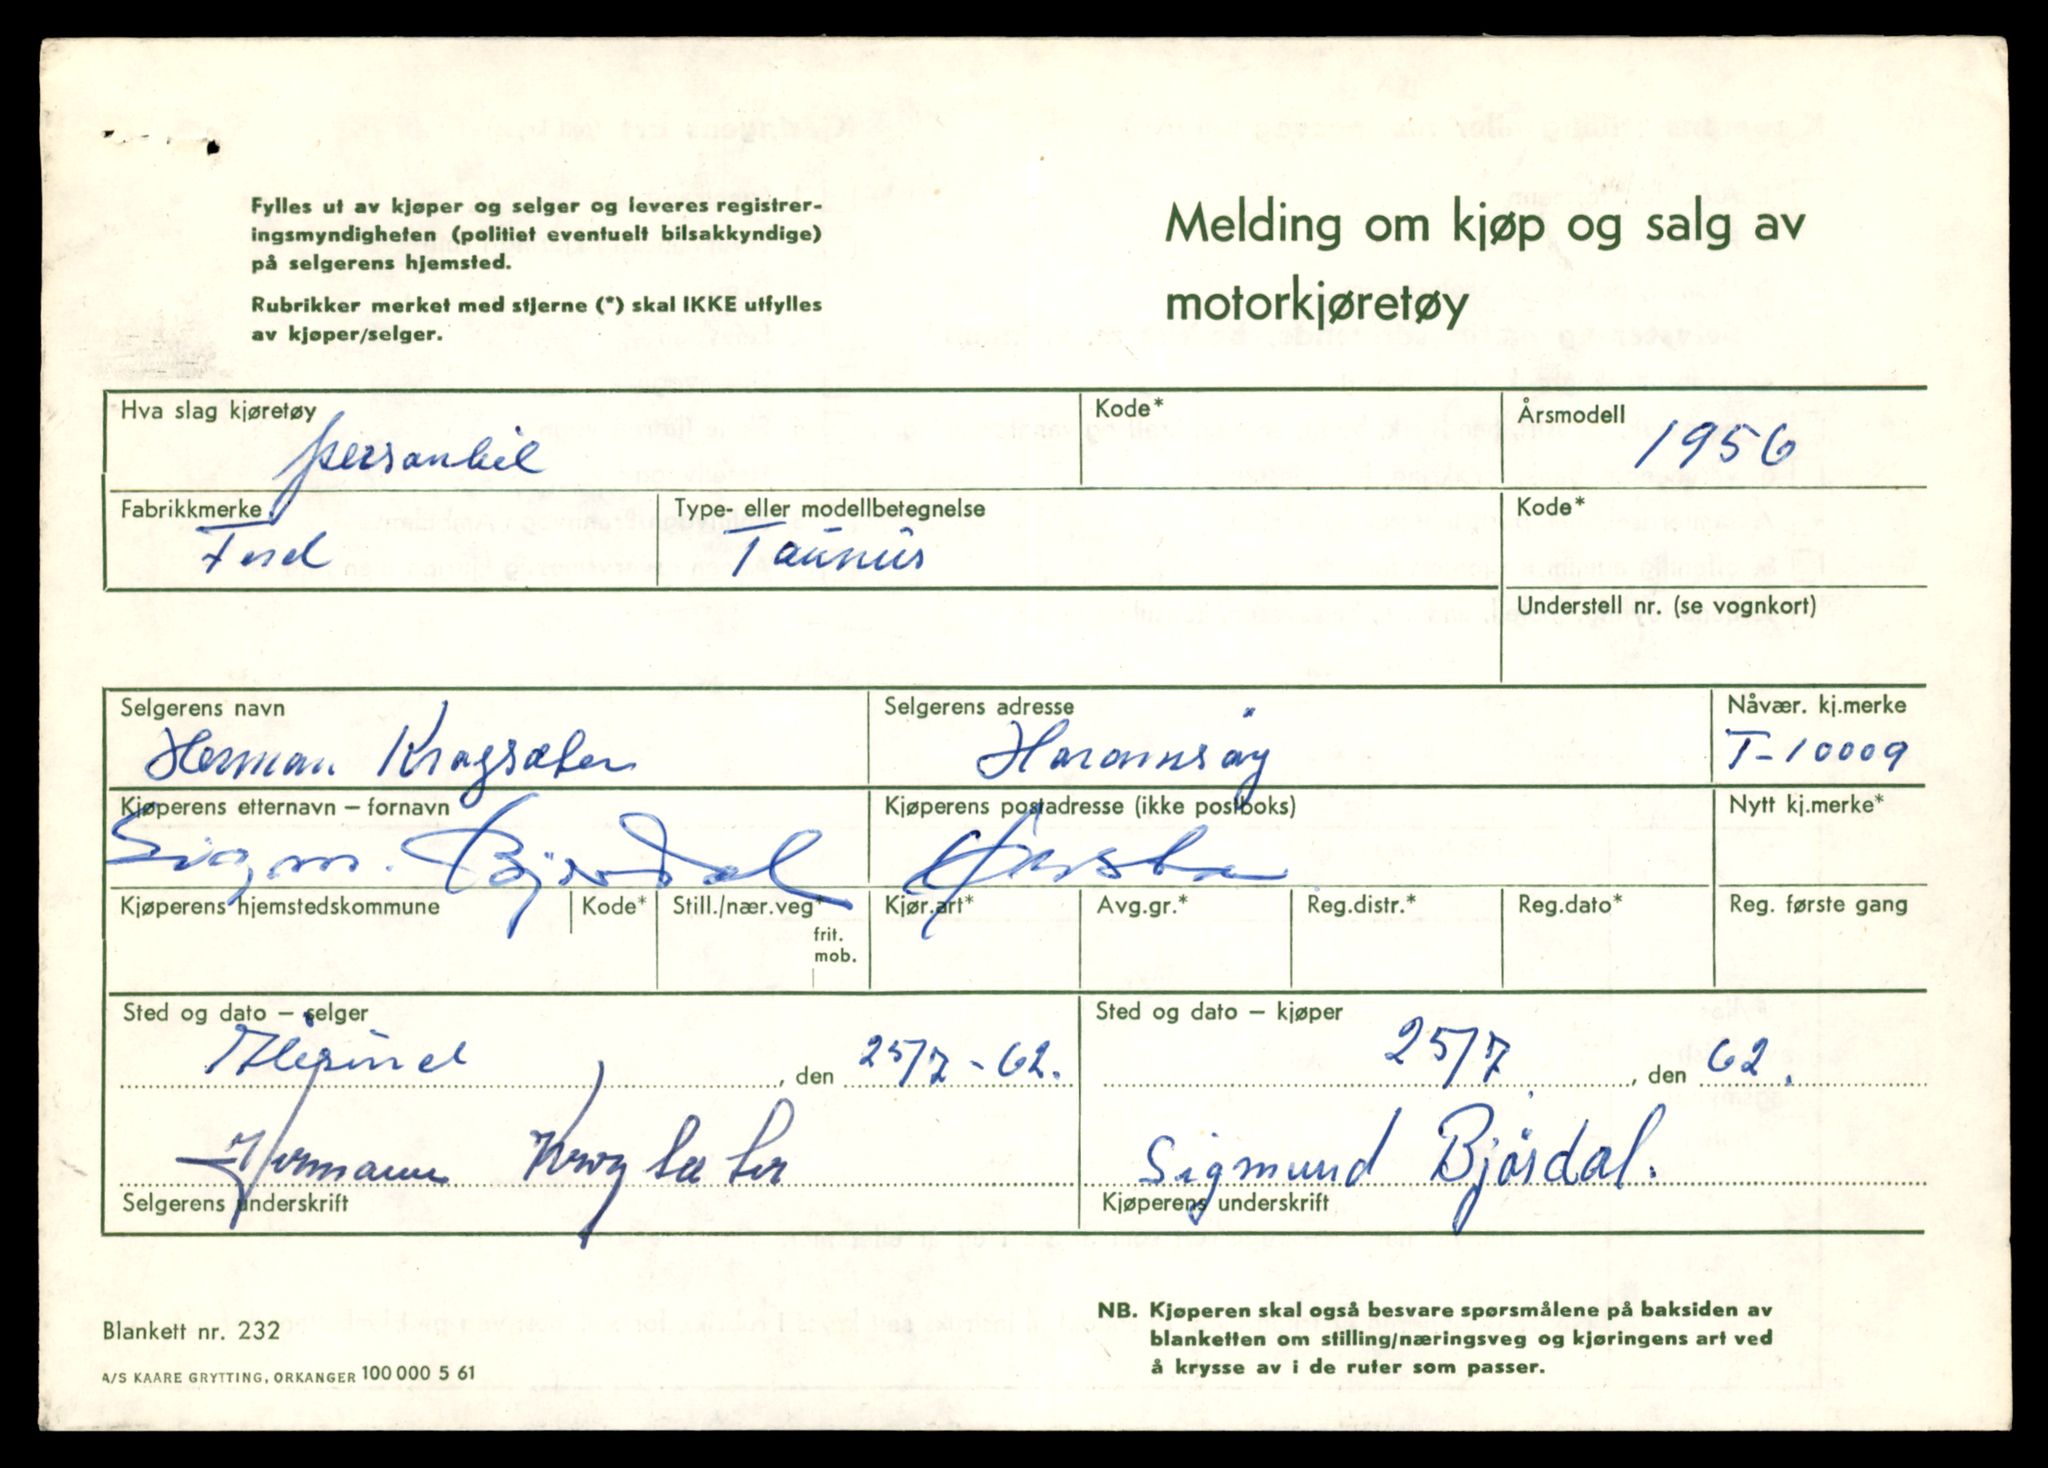 Fylles ut av kjøper og selger og leveres registrer-
ingsmyndigheten (politiet eventuelt bilsakkyndige)
på selgerens hjemsted.
Rubrikker merket med stjerne (*) skal IKKE utfylles
av kjøper/selger.
Melding om kjøp og salg av
motorkjøretøy
Hva slag kjøretøy
personbil
Kode*
Årsmodell
1956
Fabrikkmerke
Ford
Type- eller modellbetegnelse
Taunus
Kode*
Understell nr. (se vognkort)
Selgerens navn
Herman Krogsæter
Selgerens adresse
Haramsøy
Nåvær. kj.merke
T-10009
Kjøperens etternavn – fornavn
Sigm. Bjørdal
Kjøperens postadresse (ikke postboks)
Ørsta
Nytt kj.merke*
Kjøperens hjemstedskommune
Kode*
Still./nær.veg*
frit.
mob.
Kjør.art*
Avg.gr.*
Reg.distr.*
Reg.dato*
Reg. første gang
Sted og dato – selger
Ålesund, den 25/7-62.
Hermann Krogsæter
Selgerens underskrift
Sted og dato – kjøper
25/7, den 62.
Sigmund Bjørdal.
Kjøperens underskrift
Blankett nr. 232
A/S KAARE GRYTTING, ORKANGER 100 000 5 61
NB. Kjøperen skal også besvare spørsmålene på baksiden av
blanketten om stilling/næringsveg og kjøringens art ved
å krysse av i de ruter som passer.